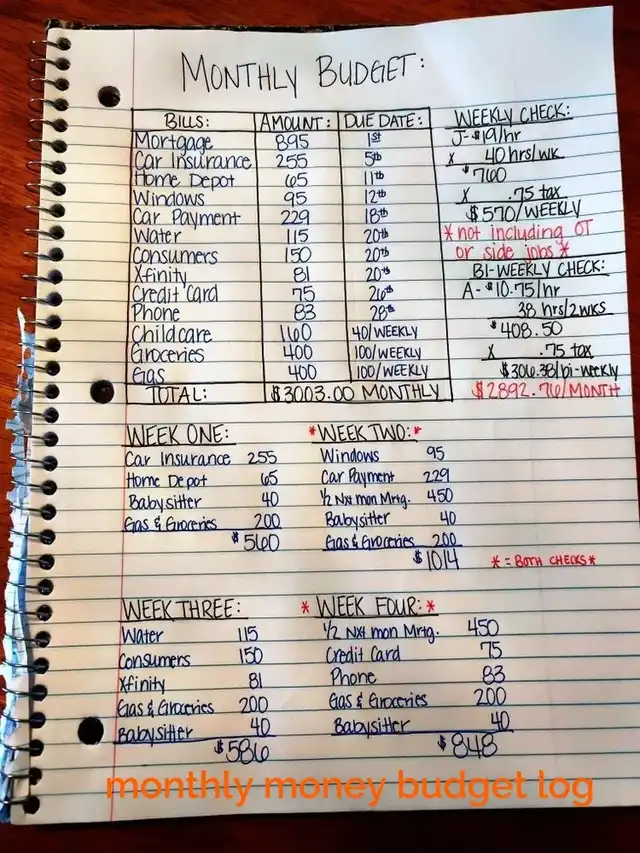 MONTHLY BUDGET:
BILLS: AMOUNT: DUE DATE:
Mortgage 895 1st
Car Insurance 255 5th
Home Depot 65 11th
Windows 95 12th
Car Payment 229 18th
Water 115 20th
Consumers 150 20th
Xfinity 81 20th
Credit Card 75 26th
Phone 83 28th
Childcare 160 40/WEEKLY
Groceries 400 100/WEEKLY
Gas 400 100/WEEKLY
TOTAL: $3003.00 MONTHLY
WEEKLY CHECK:
J- $19/hr
x 40 hrs/wk
$760
x .75 tax
$570/WEEKLY
*not including OT
or side jobs*
BI-WEEKLY CHECK:
A- $10.75/hr
38 hrs/2wks
$408.50
x .75 tax
$306.38/bi-weekly
$2892.76/MONTH
WEEK ONE:
Car Insurance 255
Home Depot 65
Babysitter 40
Gas & Groceries 200
$560
*WEEK TWO:*
Windows 95
Car Payment 229
1/2 Nxt mon Mrtg. 450
Babysitter 40
Gas & Groceries 200
$1014
* = BOTH CHECKS*
WEEK THREE:
Water 115
Consumers 150
Xfinity 81
Gas & Groceries 200
Babysitter 40
$586
* WEEK FOUR:*
1/2 Nxt mon Mrtg. 450
Credit Card 75
Phone 83
Gas & Groceries 200
Babysitter 40
$848
monthly money budget log